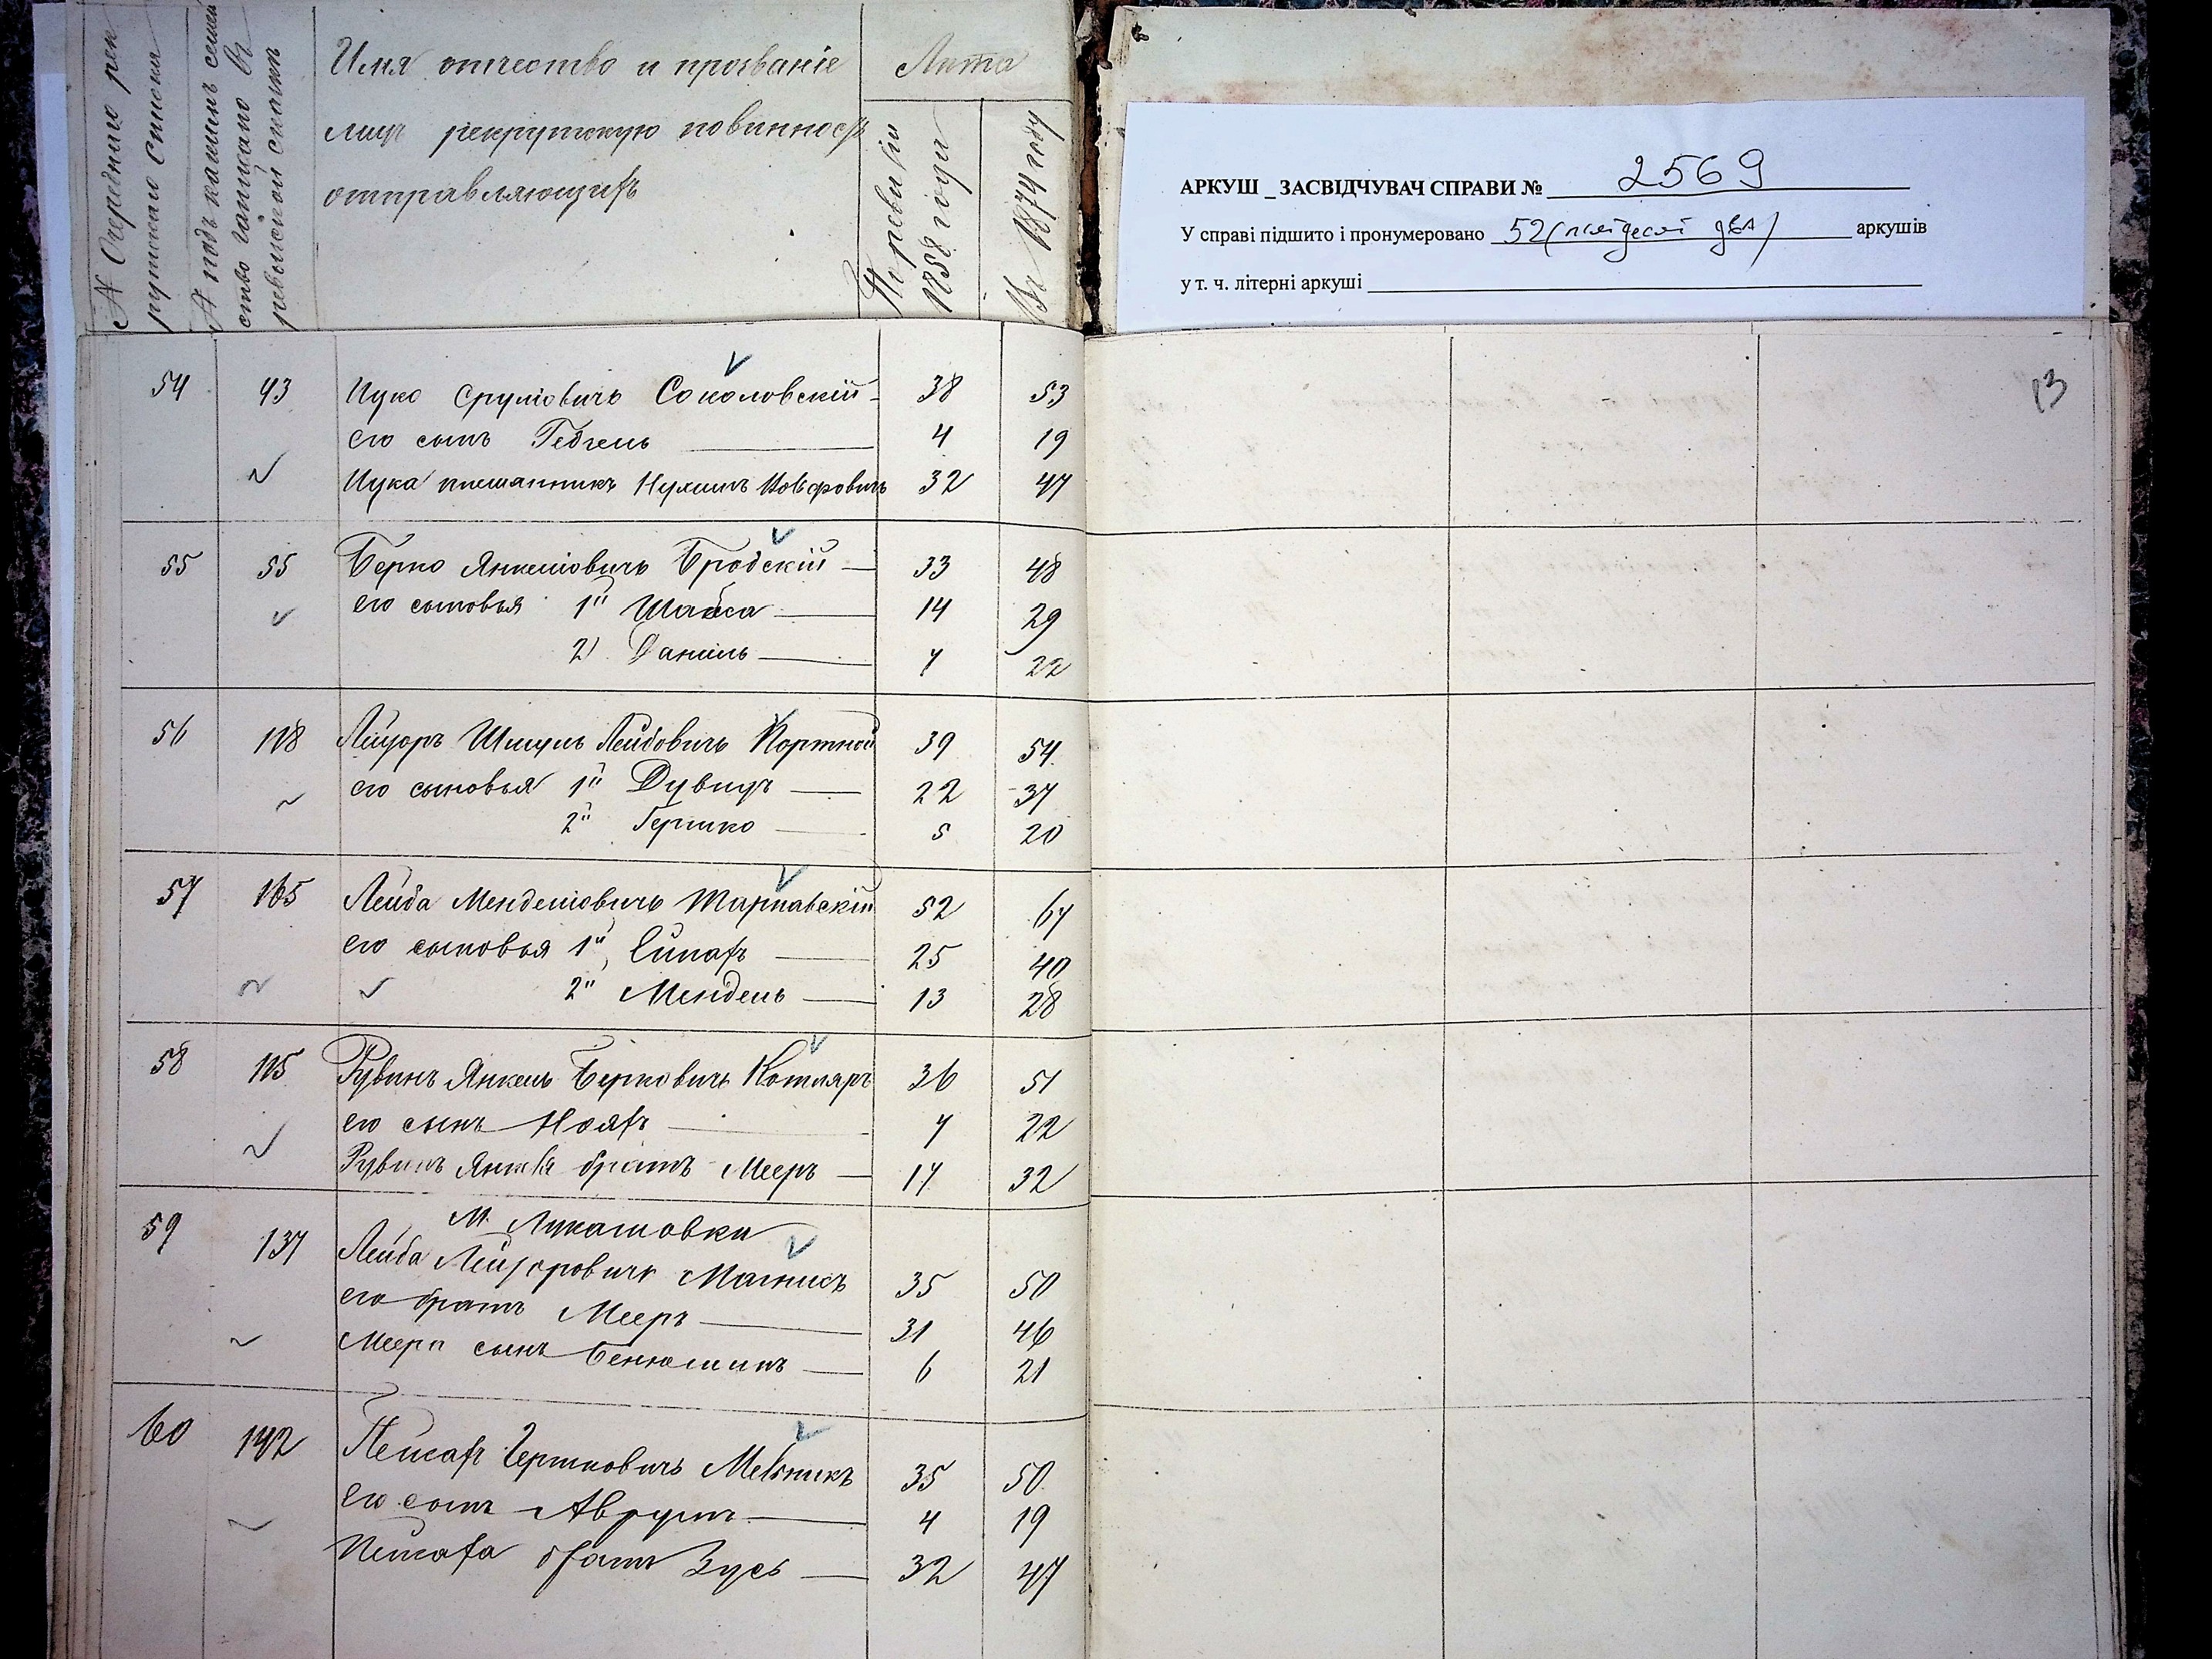 № Очереднаго рек
рутскаго списка
№ подъ какимъ семей
ство записано въ
ревизской сказкѣ
Имя отчество и прозваніе
лицъ рекрутскую повинность
отправляющихъ
Лѣта
По ревизіи
1858 года
Въ 1874 году
АРКУШ _ ЗАСВІДЧУВАЧ СПРАВИ № 2569
У справі підшито і пронумеровано 52 (пятдесят два) аркушів
у т. ч. літерні аркуші
13
54 43 Ицко Срулевичъ Соколовскій 38 53
его сынъ 4 19
Ицка племянникъ Нухимъ 32 47
55 55 Берко Янкелевичъ Бродскій 33 48
его сыновья 1й 14 29
2) Даніиль 7 22
56 118 Лейзоръ Шмуль Лейбовичъ Портной 39 54
его сыновья 1й Дувидъ 22 37
2й Гершко 5 20
57 165 Лейба Менделевичъ Таращавскій 52 67
его сыновья 1й 25 40
2й Мендель 13 28
58 115 Рувинъ Янкель Берковичъ Котляръ 36 51
его сынъ Нояхъ 7 22
Рувинъ Янкеля братъ Мееръ 17 32
М. Лукашовки
59 137 Лейба Лейзоровичъ 35 50
его братъ Мееръ 31 46
Меера сынъ Беньюминъ 6 21
60 142 Пейсахъ Гершковичъ Мельникъ 35 50
его сынъ Аврумъ 4 19
Пейсаха братъ Зусь 32 47